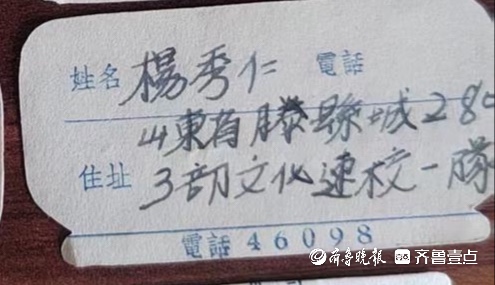 姓名 楊秀仁 電話
山東省滕縣城280
住址 3部文化速校一隊
電話 46098
齐鲁晚报 齐鲁壹点